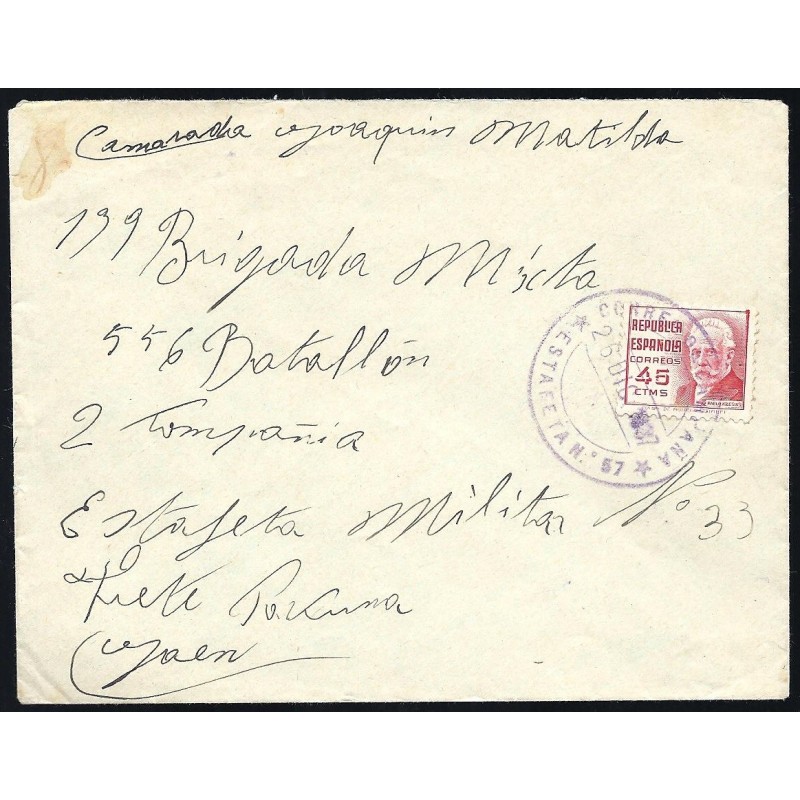 Camarada Joaquin Matilda
139 Brigada Mixta
556 Batallón
2 Compañia
Estafeta Militar Nº 33
Porcuna
Jaen
REPUBLICA
ESPAÑOLA
CORREOS
45
CTMS
PABLO IGLESIAS
CORREO CAMPAÑA
26 DIC 37
★ ESTAFETA N.º 57 ★